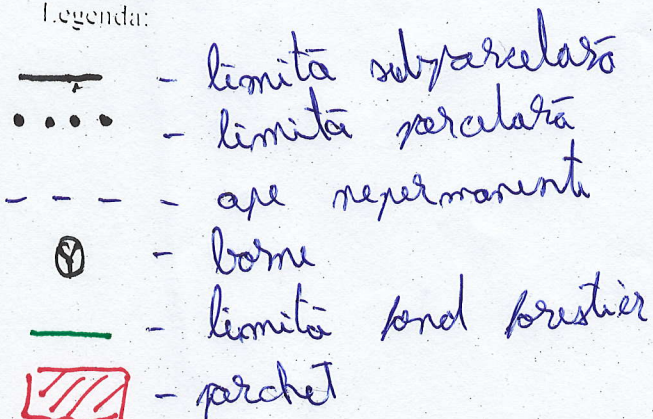 Legenda:
- limită subparcelară
- limită parcelară
- ape nepermanente
- borne
- limită fond forestier
- parchet